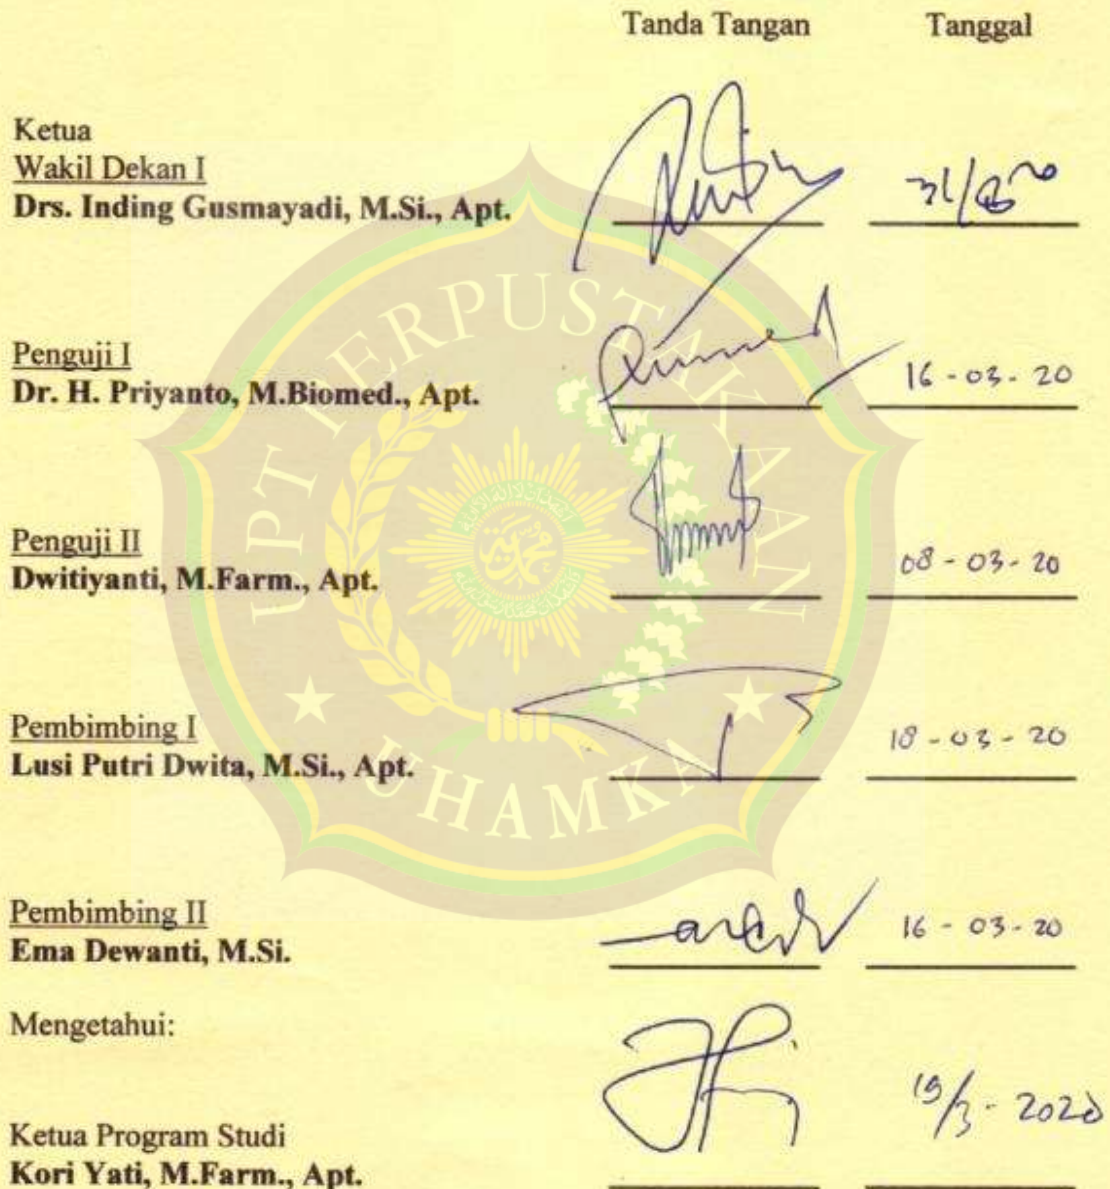 Tanda Tangan Tanggal
Ketua
Wakil Dekan I
Drs. Inding Gusmayadi, M.Si., Apt.
Penguji I
Dr. H. Priyanto, M.Biomed., Apt. 16-03-20
Penguji II
Dwitiyanti, M.Farm., Apt. 08-03-20
Pembimbing I
Lusi Putri Dwita, M.Si., Apt. 18-03-20
Pembimbing II
Ema Dewanti, M.Si. 16-03-20
Mengetahui:
19/3-2020
Ketua Program Studi
Kori Yati, M.Farm., Apt.
UPT PERPUSTAKAAN
UHAMKA